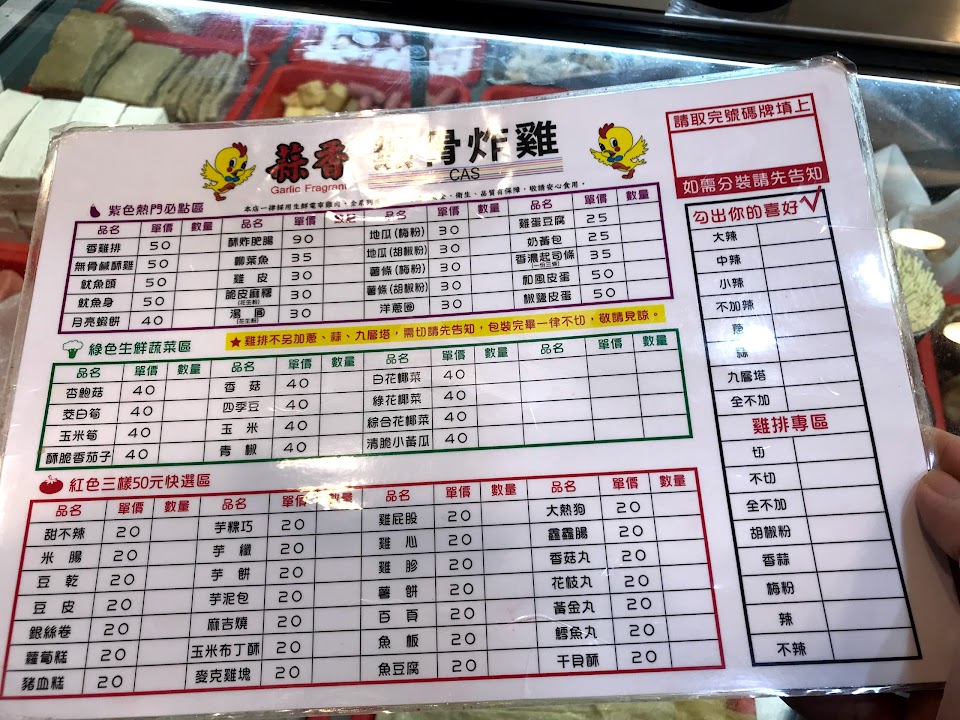 蒜香 無骨炸雞
Garlic Fragran
CAS
請取完號碼牌填上
如需分裝請先告知
紫色熱門必點區
品名 單價 數量 品名 單價 數量 品名 單價 數量
香雞排 50 酥炸肥腸 90 地瓜(梅粉) 30 雞蛋豆腐 25
無骨鹹酥雞 50 柳葉魚 35 地瓜(胡椒粉) 30 奶黃包 25
魷魚頭 50 雞皮 30 薯條(梅粉) 30 香濃起司條 35
魷魚身 50 脆皮麻糬 30 薯條(胡椒粉) 30 和風皮蛋 50
月亮蝦餅 40 湯圓 30 洋蔥圈 30 椒鹽皮蛋 50
★雞排不另加蔥、蒜、九層塔,需切請先告知,包裝完畢一律不切,敬請見諒。
綠色生鮮蔬菜區
品名 單價 數量 品名 單價 數量 品名 單價 數量 品名 單價 數量
杏鮑菇 40 香菇 40 白花椰菜 40
茭白筍 40 四季豆 40 綠花椰菜 40
玉米筍 40 玉米 40 綜合花椰菜 40
酥脆番茄子 40 青椒 40 清脆小黃瓜 40
紅色三樣50元快選區
品名 單價 數量 品名 單價 數量 品名 單價 數量 品名 單價 數量
甜不辣 20 芋粿巧 20 雞屁股 20 大熱狗 20
米腸 20 芋籤 20 雞心 20 鑫鑫腸 20
豆乾 20 芋餅 20 雞胗 20 香菇丸 20
豆皮 20 芋泥包 20 薯餅 20 花枝丸 20
銀絲卷 20 麻吉燒 20 百頁 20 黃金丸 20
蘿蔔糕 20 玉米布丁酥 20 魚板 20 鱈魚丸 20
豬血糕 20 麥克雞塊 20 魚豆腐 20 干貝酥 20
勾出你的喜好
大辣
中辣
小辣
不加辣
蔥
蒜
九層塔
全不加
雞排專區
切
不切
全不加
胡椒粉
香蒜
梅粉
辣
不辣